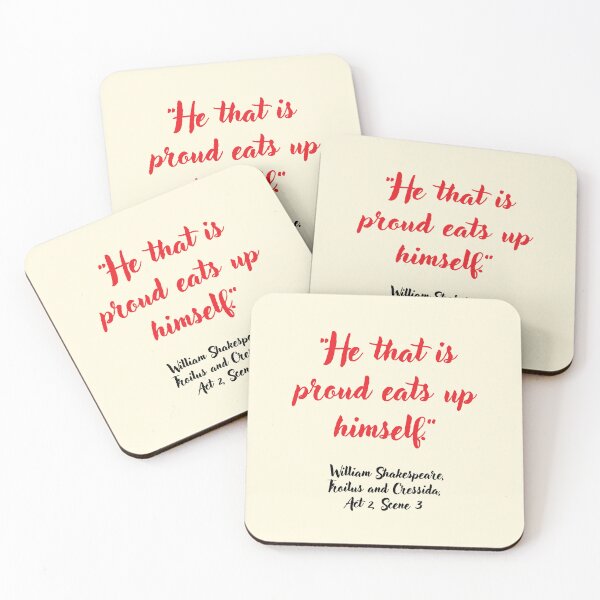 "He that is
proud eats up
"He that is
proud eats up
himself."
William
"He that is
proud eats up
himself."
William Shakespeare
Troilus and Cres
Act 2, Scene
"He that is
proud eats up
himself."
William Shakespeare,
Troilus and Cressida,
Act 2, Scene 3